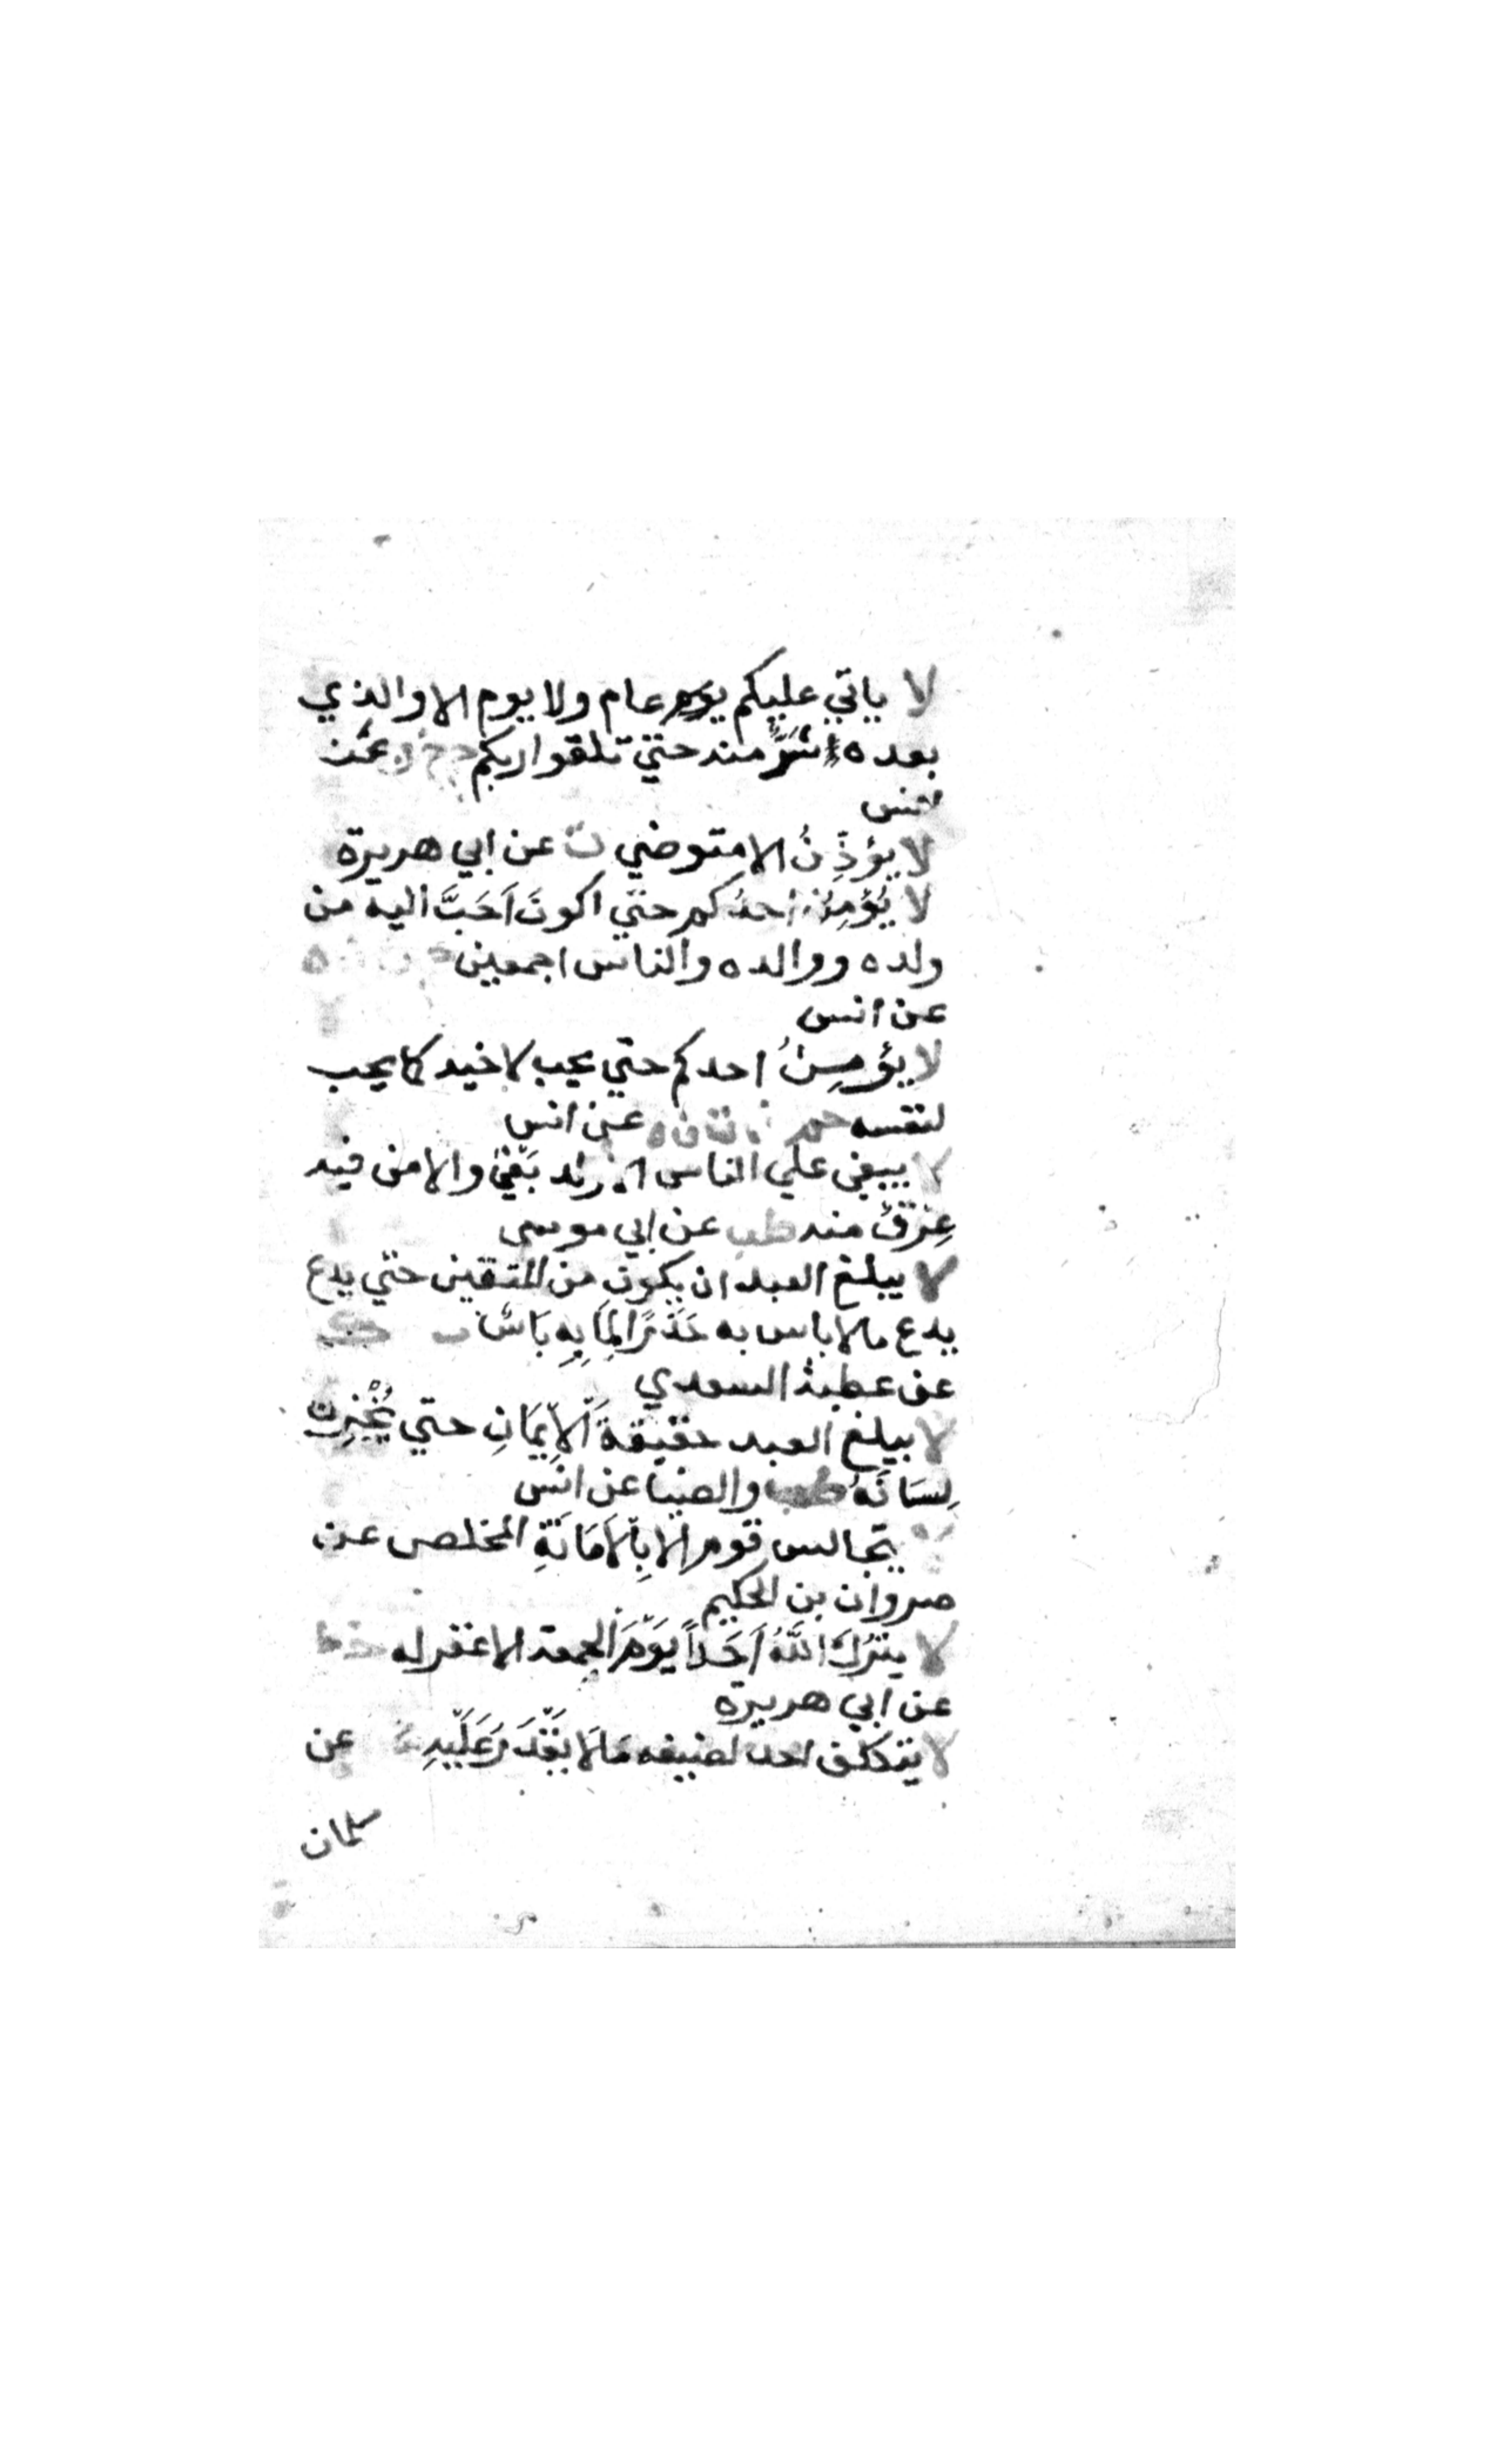 لا ياتي عليكم يوم عام ولا يوم الا والذي
بعده شَرٌّ منه حتي تلقوا ربكم عن
انس
لا يؤذِنُ الا متوضي ت عن ابي هريرة
لا يُؤمِنُ احدُكم حتي اكونَ اَحَبَّ اليه من
ولده ووالده والناس اجمعين
عن انس
لا يؤمِنُ احدكم حتي يحب لاخيه كما يحب
لنفسه حم ت ن ه عن انس
لا يبغي علي الناس الا ولد بَغْيٍ والا من فيه
عِرْقٌ منه طب عن ابي موسي
لا يبلغ العبد ان يكون من المتقين حتي يدع
يدع مالا باس به حَذَرًا لِمَا بِهِ بَاسٌ ت ه ك
عن عطية السعدي
لا يبلغ العبد حقيقةَ الاِيمَانِ حتي يُخْزِن
لِسَانَهُ طب والضيا عن انس
لا يتجالس قوم الا بِالاَمَانَةِ المخلص عن
مروان بن الحكيم
لا يترُك اللَّهُ اَحَداً يَوْمَ الجمعة الا غفر له خط
عن ابي هريرة
لا يتكلف احد لضيفه مَالَا يَقْدَر عَلَيْهِ عن
سلمان